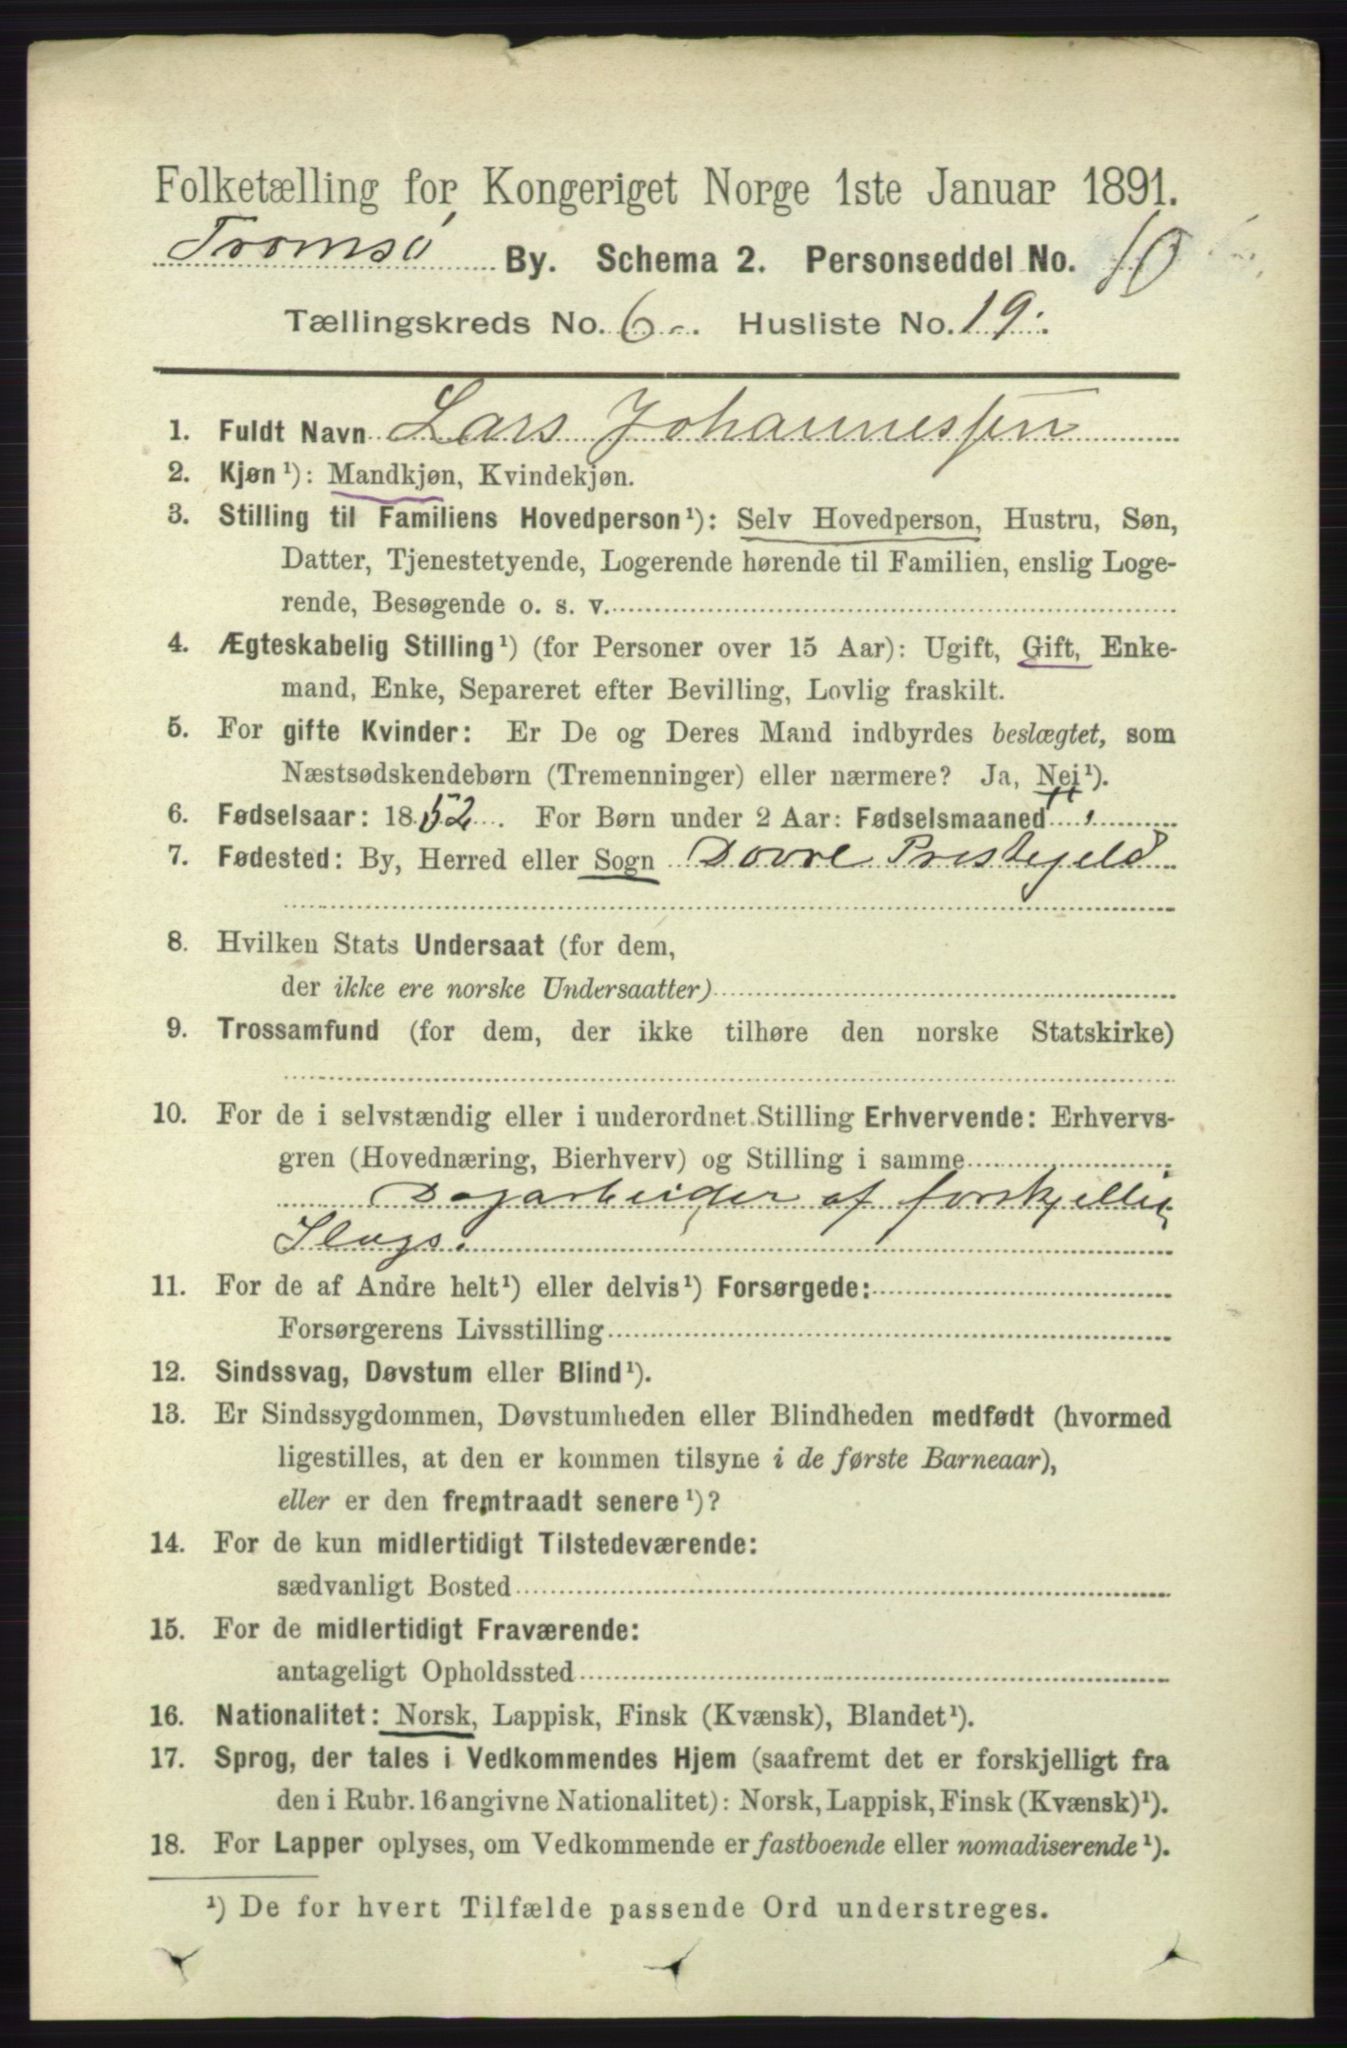 Folketælling for Kongeriget Norge 1ste Januar 1891.
Tromsø By. Schema 2. Personseddel No. 10
Tællingskreds No. 6 -. Husliste No. 19.
1. Fuldt Navn Lars Johannessen
2. Kjøn¹): Mandkjøn, Kvindekjøn.
3. Stilling til Familiens Hovedperson¹): Selv Hovedperson, Hustru, Søn,
Datter, Tjenestetyende, Logerende hørende til Familien, enslig Loge-
rende, Besøgende o. s. v.
4. Ægteskabelig Stilling¹) (for Personer over 15 Aar): Ugift, Gift, Enke-
mand, Enke, Separeret efter Bevilling, Lovlig fraskilt.
5. For gifte Kvinder: Er De og Deres Mand indbyrdes beslægtet, som
Næstsødskendebørn (Tremenninger) eller nærmere? Ja, Nei¹).
6. Fødselsaar: 1852. For Børn under 2 Aar: Fødselsmaaned
7. Fødested: By, Herred eller Sogn Dovre Prestegjeld
8. Hvilken Stats Undersaat (for dem,
der ikke ere norske Undersaatter)
9. Trossamfund (for dem, der ikke tilhøre den norske Statskirke)
10. For de i selvstændig eller i underordnet Stilling Erhvervende: Erhvervs-
gren (Hovednæring, Bierhverv) og Stilling i samme
Dagarbeider af forskjellig
Slags.
11. For de af Andre helt¹) eller delvis¹) Forsørgede:
Forsørgerens Livsstilling
12. Sindssvag, Døvstum eller Blind¹).
13. Er Sindssygdommen, Døvstumheden eller Blindheden medfødt (hvormed
ligestilles, at den er kommen tilsyne i de første Barneaar),
eller er den fremtraadt senere¹)?
14. For de kun midlertidigt Tilstedeværende:
sædvanligt Bosted
15. For de midlertidigt Fraværende:
antageligt Opholdssted
16. Nationalitet: Norsk, Lappisk, Finsk (Kvænsk), Blandet¹).
17. Sprog, der tales i Vedkommendes Hjem (saafremt det er forskjelligt fra
den i Rubr. 16 angivne Nationalitet): Norsk, Lappisk, Finsk (Kvænsk)¹).
18. For Lapper oplyses, om Vedkommende er fastboende eller nomadiserende¹).
¹) De for hvert Tilfælde passende Ord understreges.